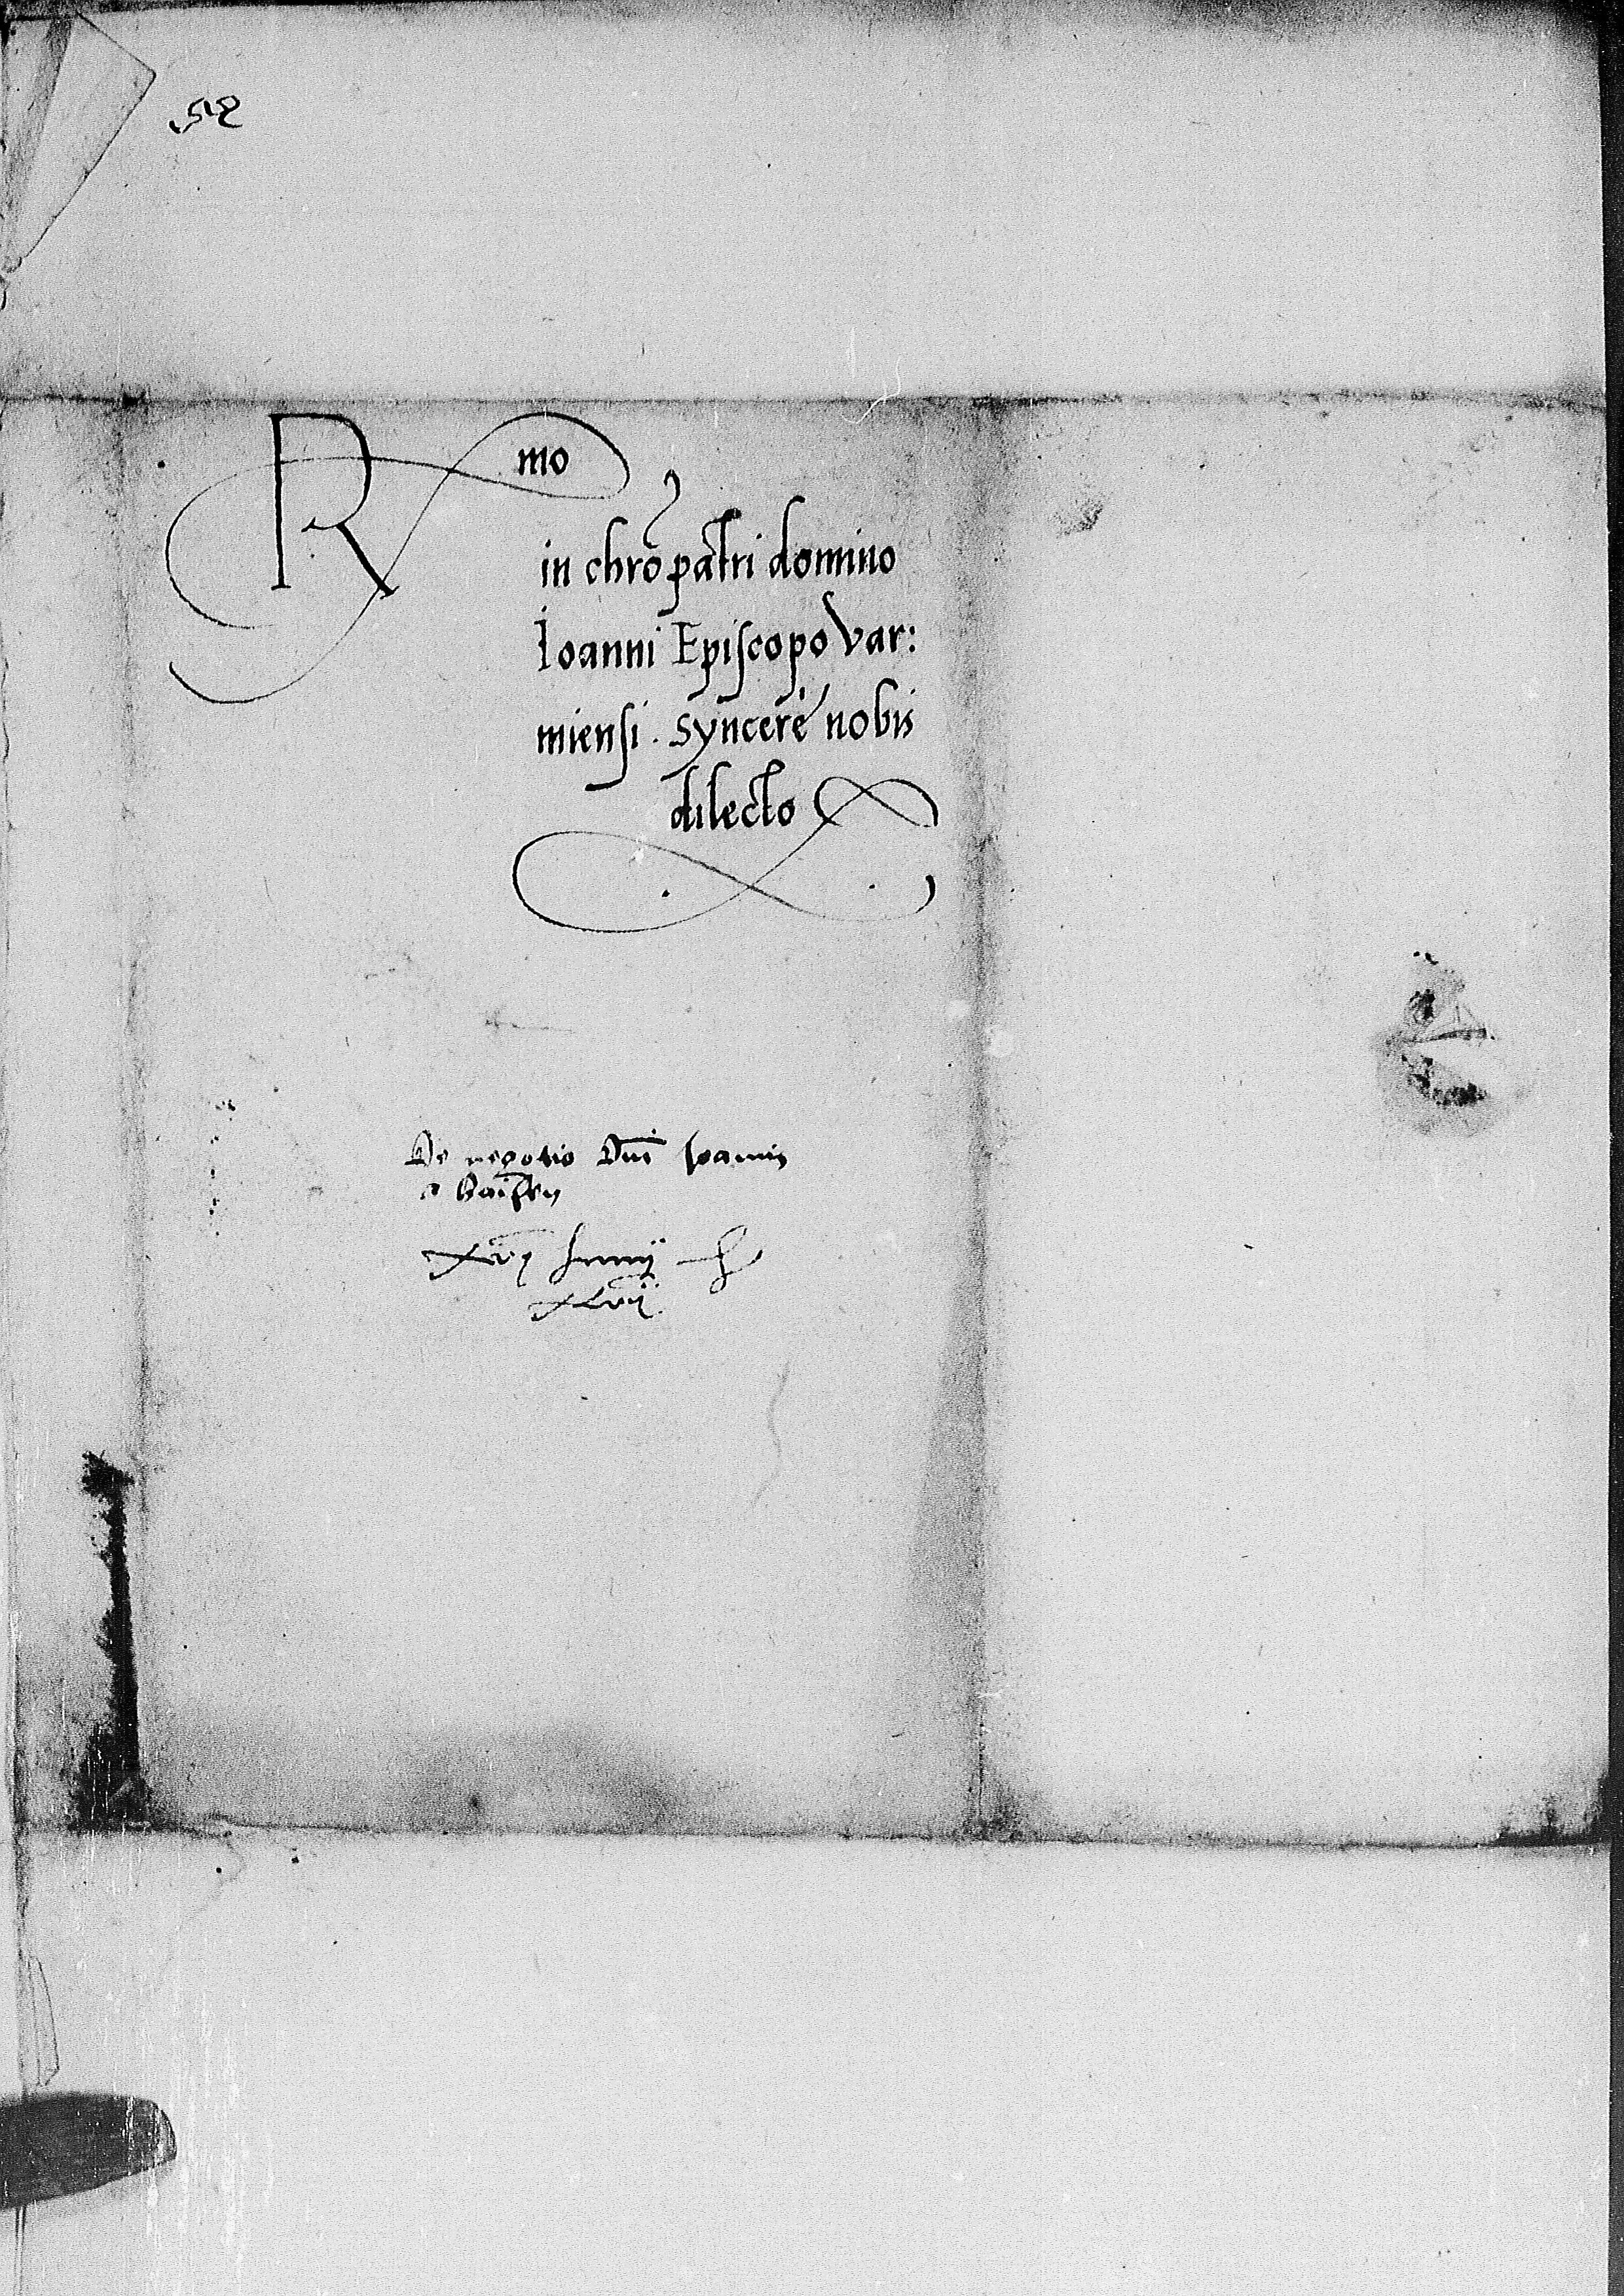 R mo
in chro patri domino
Ioanni Episcopo Var:
miensi. syncere nobis
dilecto
De negotio Dni Ioannis
a Baisen
Iunij
XLvij